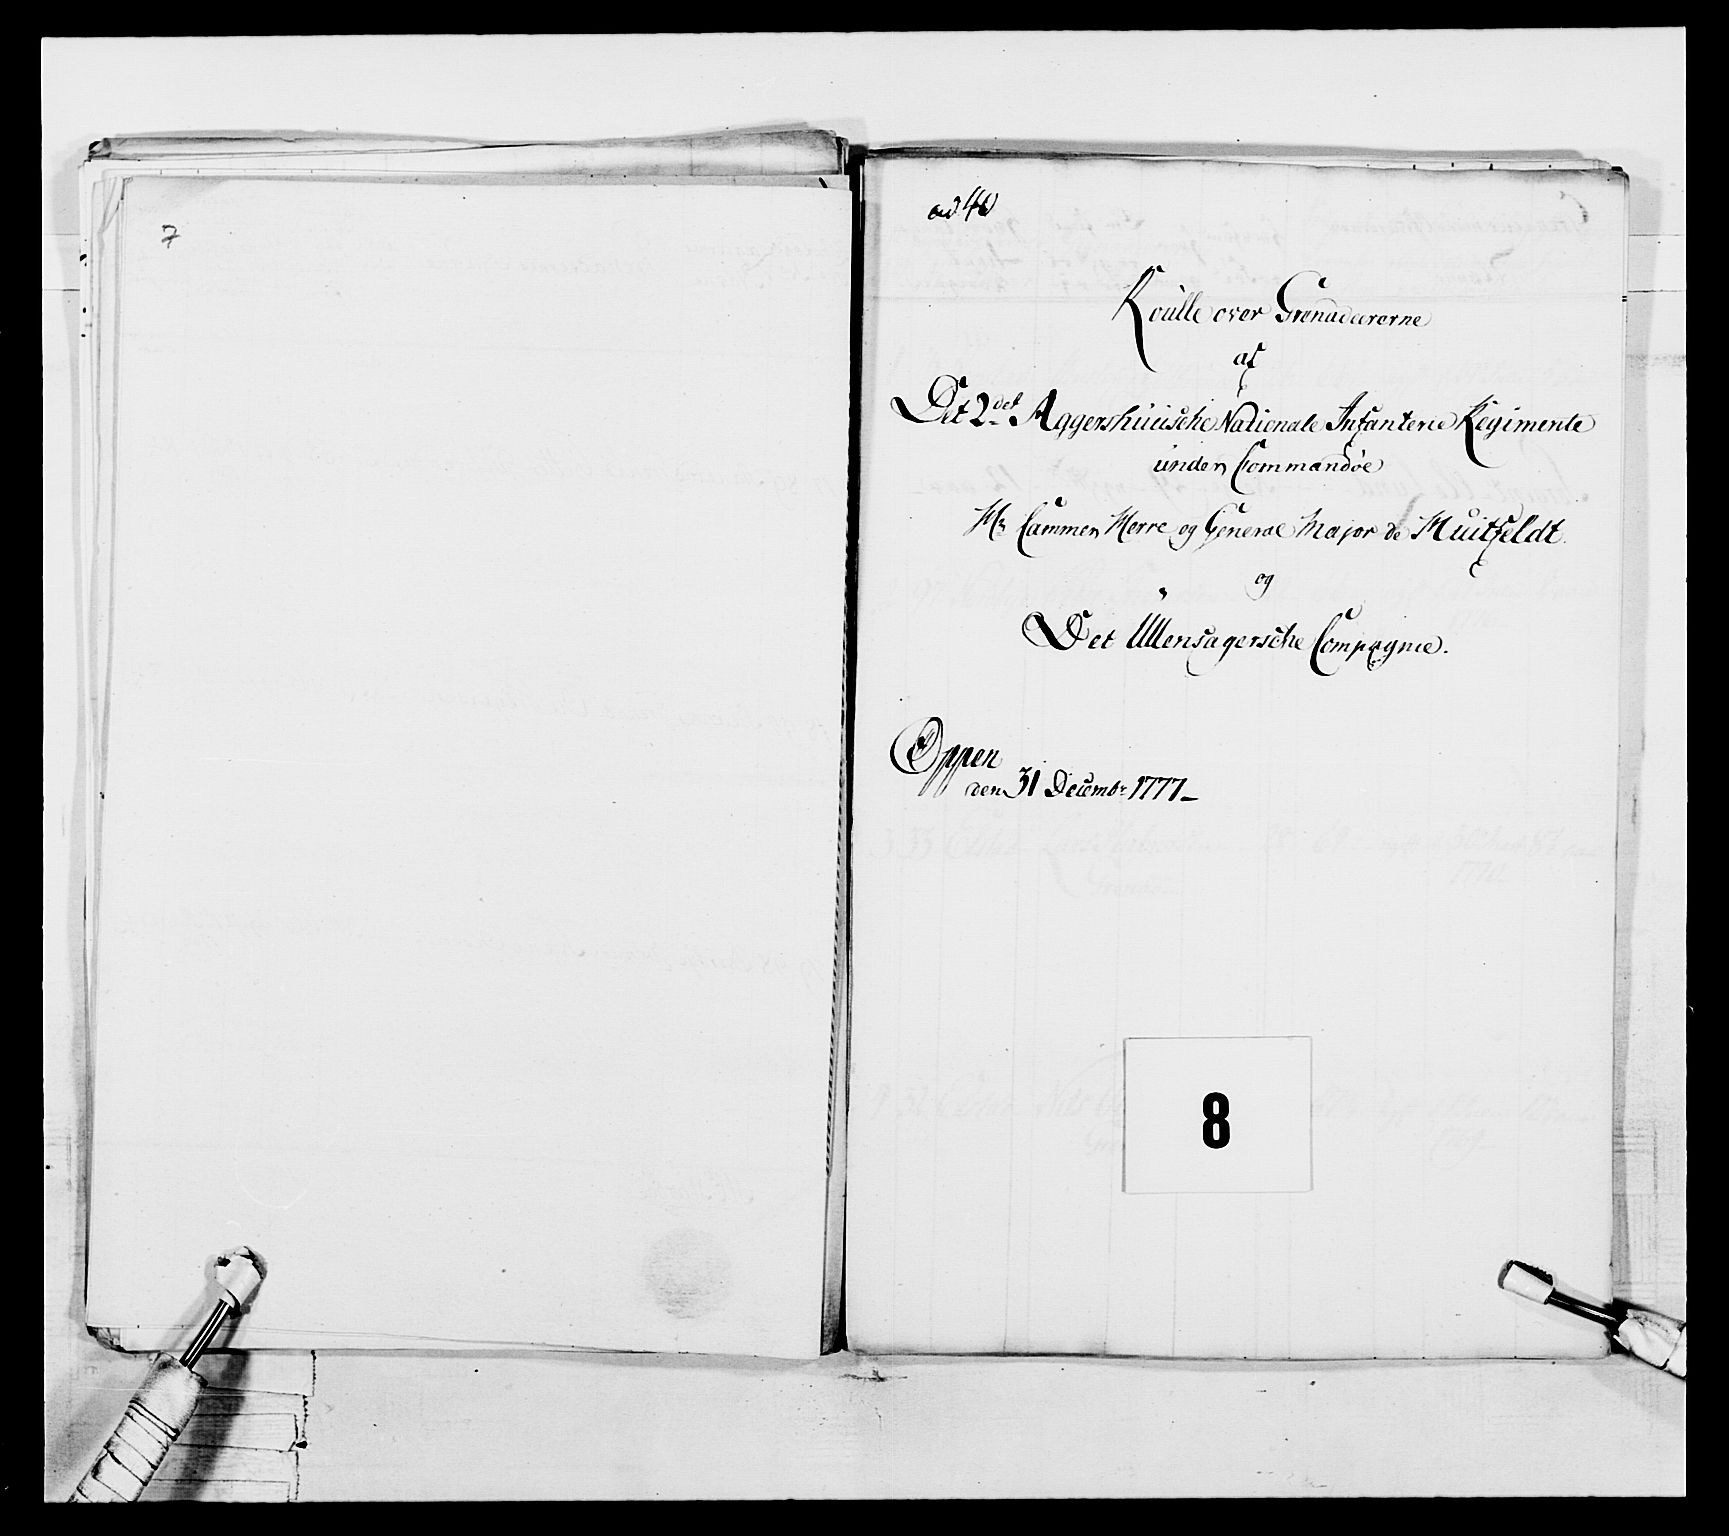 7
ad 40
Roulle over Grenadeererne
af
Det 2det Aggershuusche Nationale Infanterie Regimente
under Commandoe
Hr Cammer Herre og General Major de Huitfeldt.
og
Det Ullensagersche Compagnie.
Oppen
den 31 Decembr 1777
8